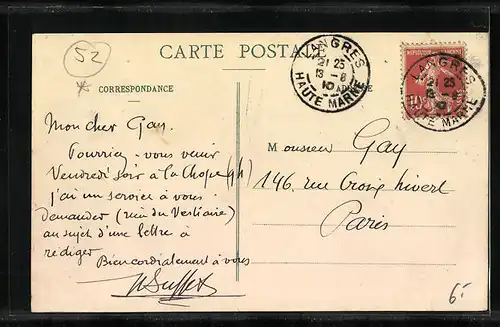 52
CARTE POSTALE
CORRESPONDANCE
LANGRES
21 25
13-8
10
HAUTE MARNE
LANGRES
21 25
13-8
10
HAUTE MARNE
10
Mon cher Gay.
Pourriez-vous venir
Vendredi soir à la Chope (9h)
j'ai un service à vous
demander (rein du Vestiaire)
au sujet d'une lettre à
rédiger
Bien cordialement à vous
Monsieur Gay
146, rue Croix nivert
Paris
6.-